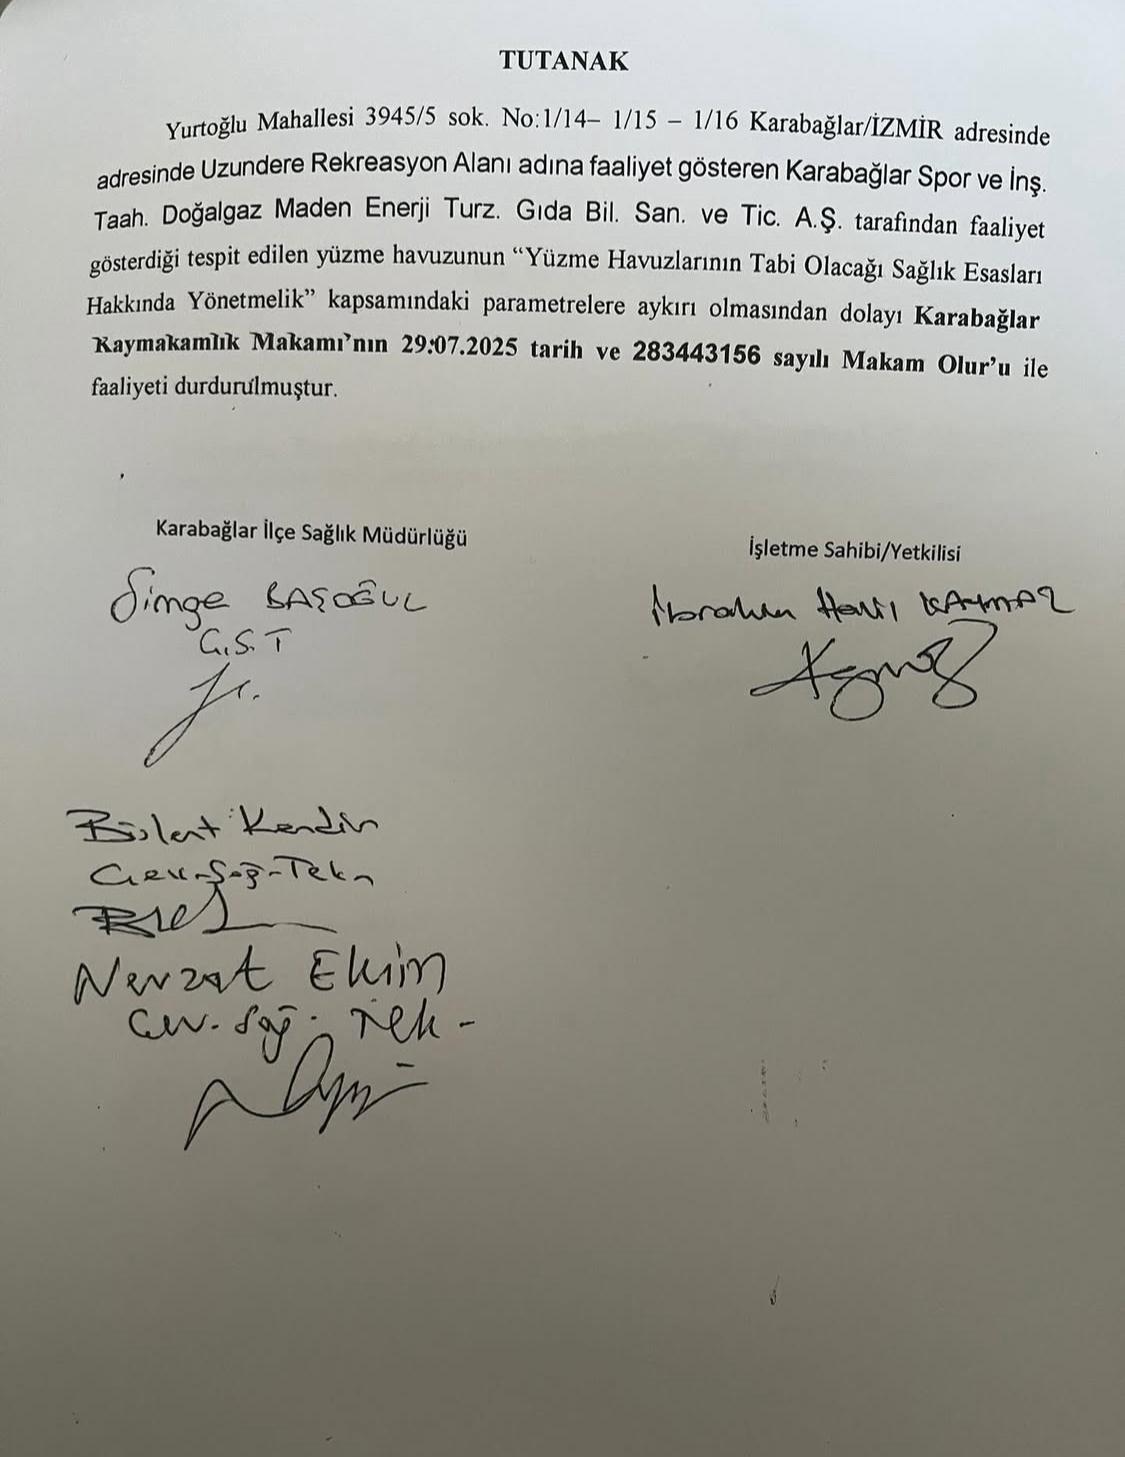 TUTANAK
Yurtoğlu Mahallesi 3945/5 sok. No:1/14– 1/15 – 1/16 Karabağlar/İZMİR adresinde
adresinde Uzundere Rekreasyon Alanı adına faaliyet gösteren Karabağlar Spor ve İnş.
Taah. Doğalgaz Maden Enerji Turz. Gıda Bil. San. ve Tic. A.Ş. tarafından faaliyet
gösterdiği tespit edilen yüzme havuzunun “Yüzme Havuzlarının Tabi Olacağı Sağlık Esasları
Hakkında Yönetmelik” kapsamındaki parametrelere aykırı olmasından dolayı Karabağlar
Kaymakamlık Makamı’nın 29:07.2025 tarih ve 283443156 sayılı Makam Olur’u ile
faaliyeti durdurulmuştur.
Karabağlar İlçe Sağlık Müdürlüğü
İşletme Sahibi/Yetkilisi
Simge BAŞOĞUL
İbrahim Halil KAYMAZ
G.S.T
Bülent Kendin
Çev-Sağ-Tekn
Nevzat Ekim
Çev. Sağ. Tek-